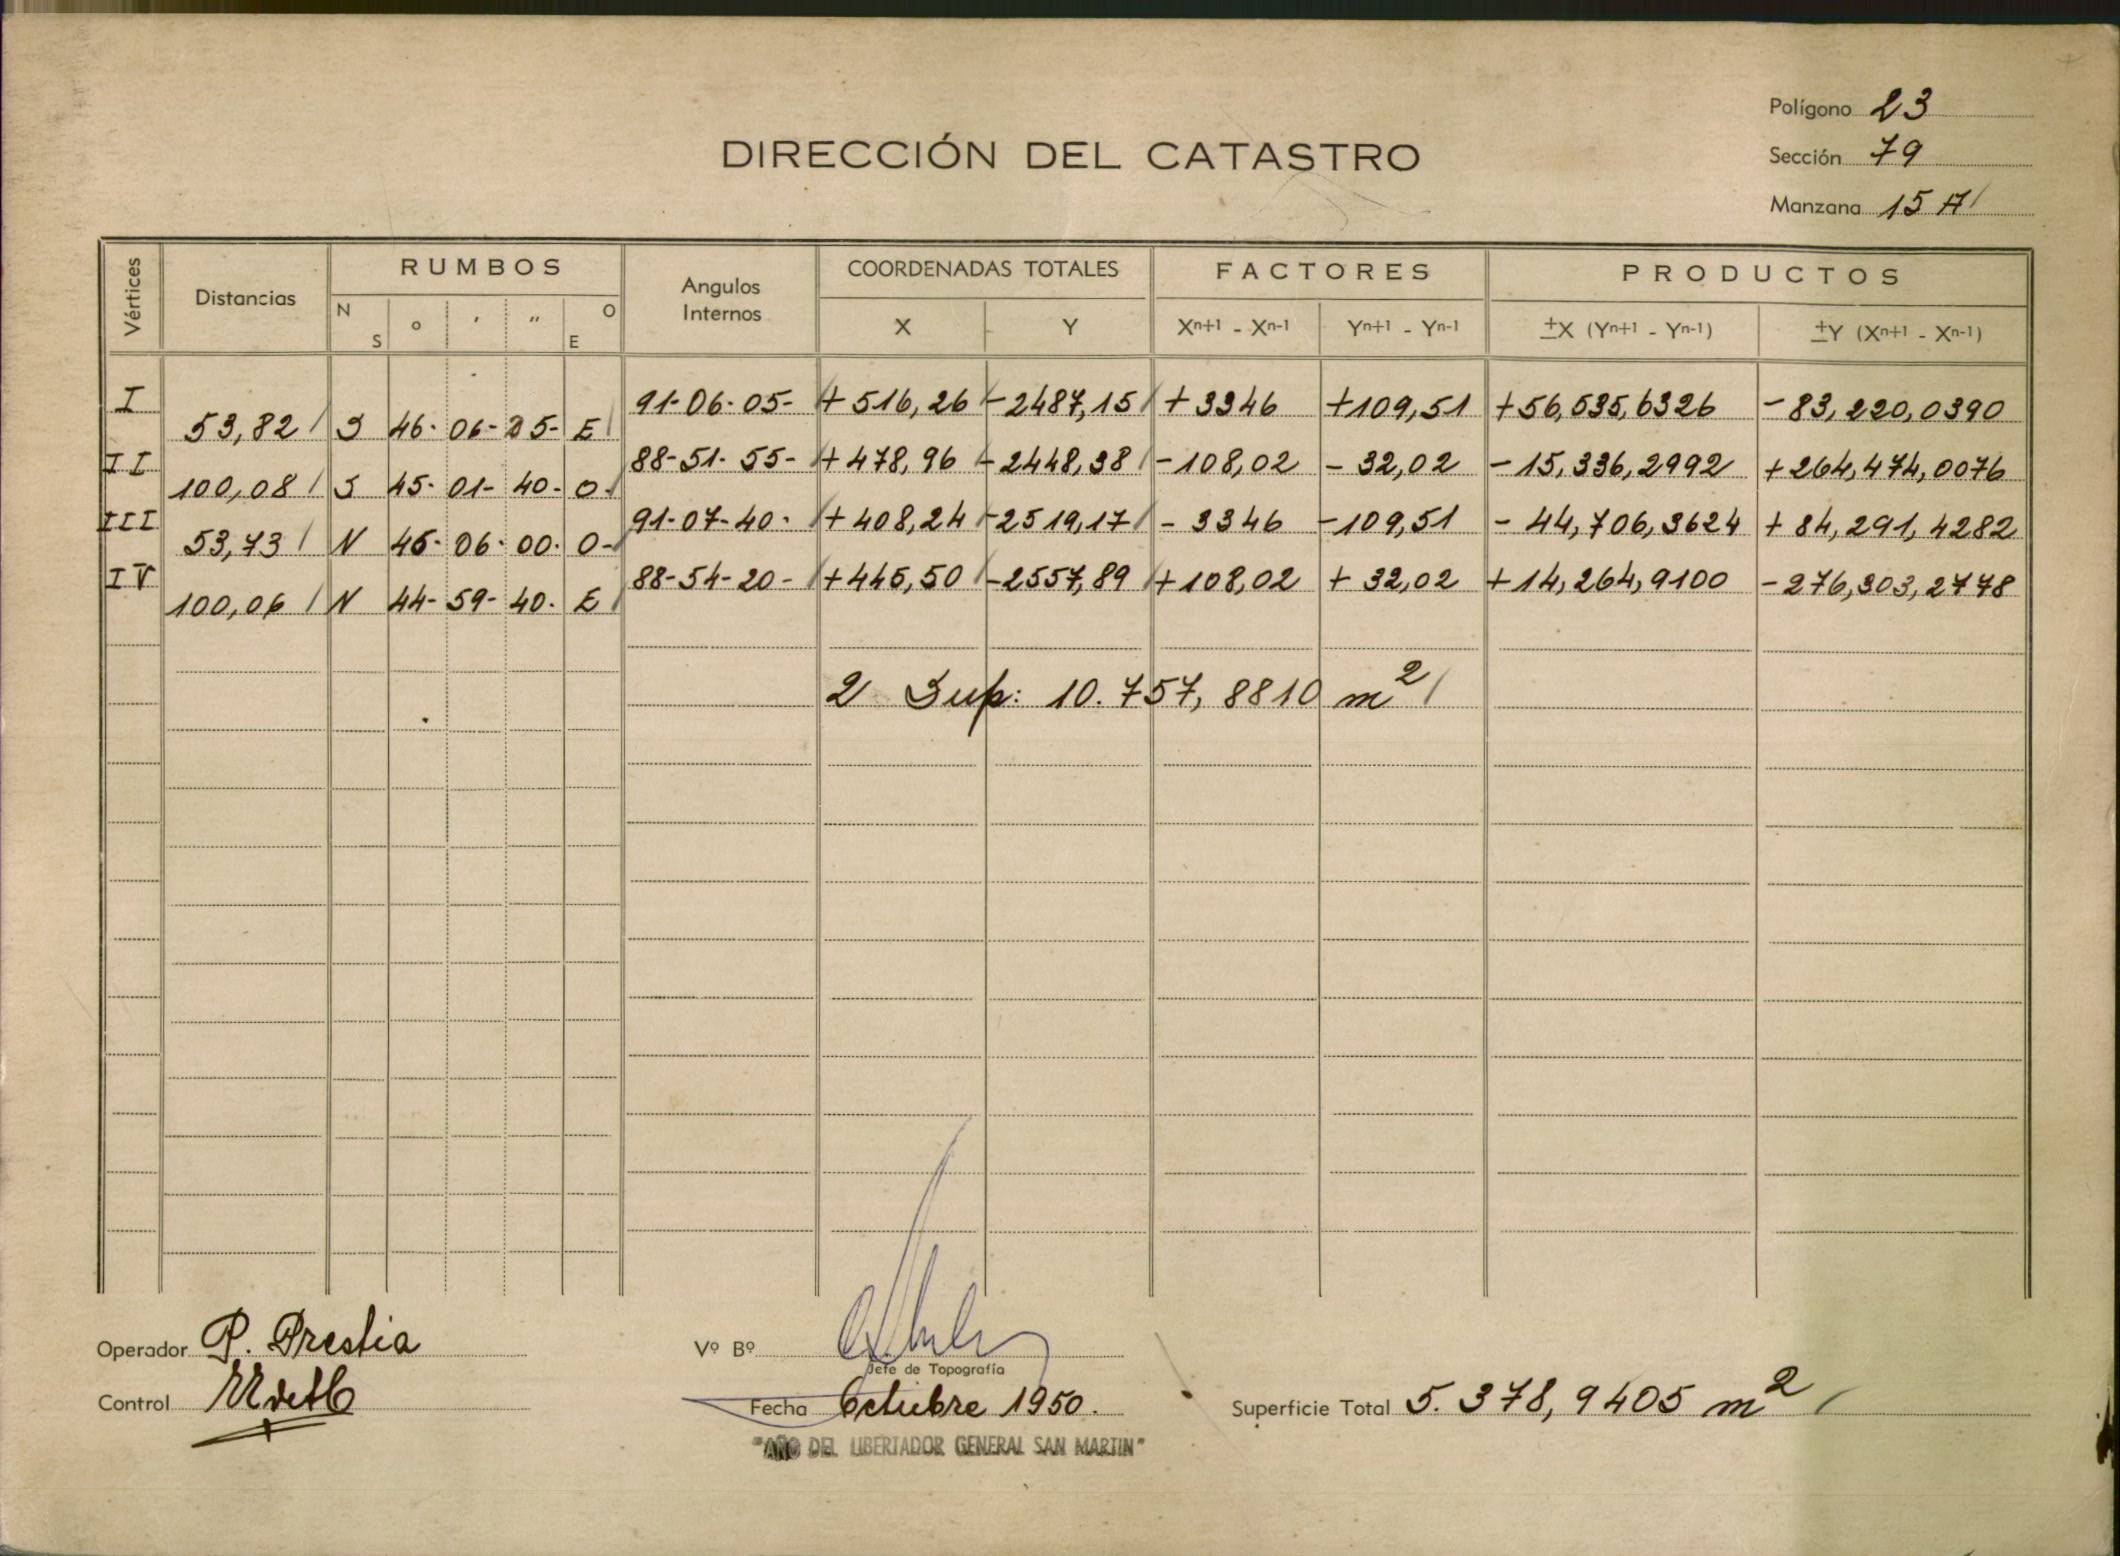 Polígono 23
DIRECCIÓN DEL CATASTRO
Sección 79
Manzana 15 A
Vértices Distancias RUMBOS Angulos Internos COORDENADAS TOTALES FACTORES PRODUCTOS
N S ° ' " O E X Y Xn+1 - Xn-1 Yn+1 - Yn-1 ±X (Yn+1 - Yn-1) ±Y (Xn+1 - Xn-1)
I 91-06-05- +516,26 -2487,15 +3346 +109,51 +56,535,6326 -83,220,0390
53,82 S 46-06-25- E
II 88-51-55- +478,96 -2448,38 -108,02 -32,02 -15,336,2992 +264,474,0076
100,08 S 45-01-40- O
III 91-07-40- +408,24 -2519,17 -3346 -109,51 -44,706,3624 +84,291,4282
53,73 N 46-06-00- O-
IV 88-54-20- +445,50 -2557,89 +108,02 +32,02 +14,264,9100 -276,303,2778
100,06 N 44-59-40- E
2 Sup: 10.757,8810 m²
Operador P. Prestia
Vº Bº
Jefe de Topografía
Control
Fecha Octubre 1950.
Superficie Total 5.378,9405 m²
"AÑO DEL LIBERTADOR GENERAL SAN MARTIN"